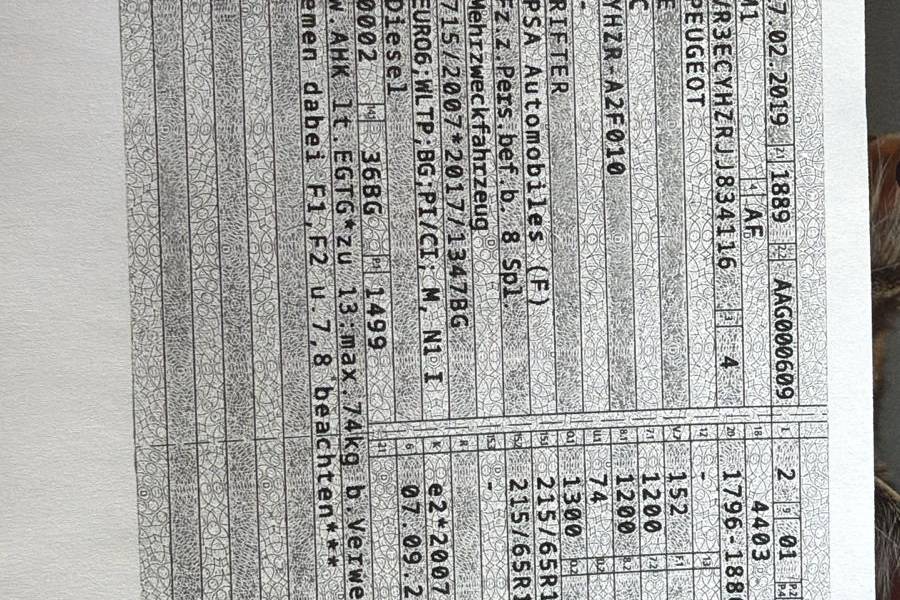 7.02.2019 2.1 1889 2.2 AAG000609 L 2 9 01
M1 4 AF 18 4403
VR3ECYHZRJJ834116 3 4 20 1796-188
PEUGEOT 12 -
E V.7 152
C 7.1 1200
YHZR-A2F010 8.1 1200
- U.1 74
RIFTER O.1 1300
PSA Automobiles (F) 15.1 215/65R1
Fz.z.Pers.bef.b. 8 Spl. 15.2 215/65R1
Mehrzweckfahrzeug 15.3 -
715/2007*2017/1347BG R
EURO6;WLTP;BG;PI/CI; M, N1 I K e2*2007
Diesel 6 07.09.2
0002 14.1 36BG P.1 1499 21
w. AHK lt. EGTG*zu 13:max.74kg b.Verwe
emen dabei F1,F2 u.7,8 beachten***